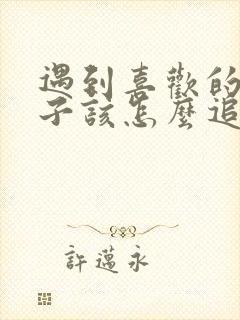 遇到喜歡的
子該怎麼追
許邁永